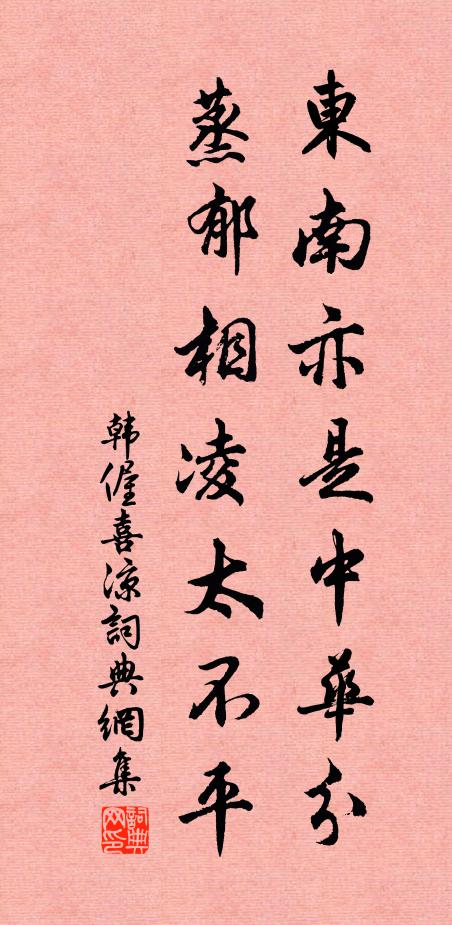 東南亦是中華分
蒸郁相凌太不平
韩偓喜凉詞典網集
詞典网印